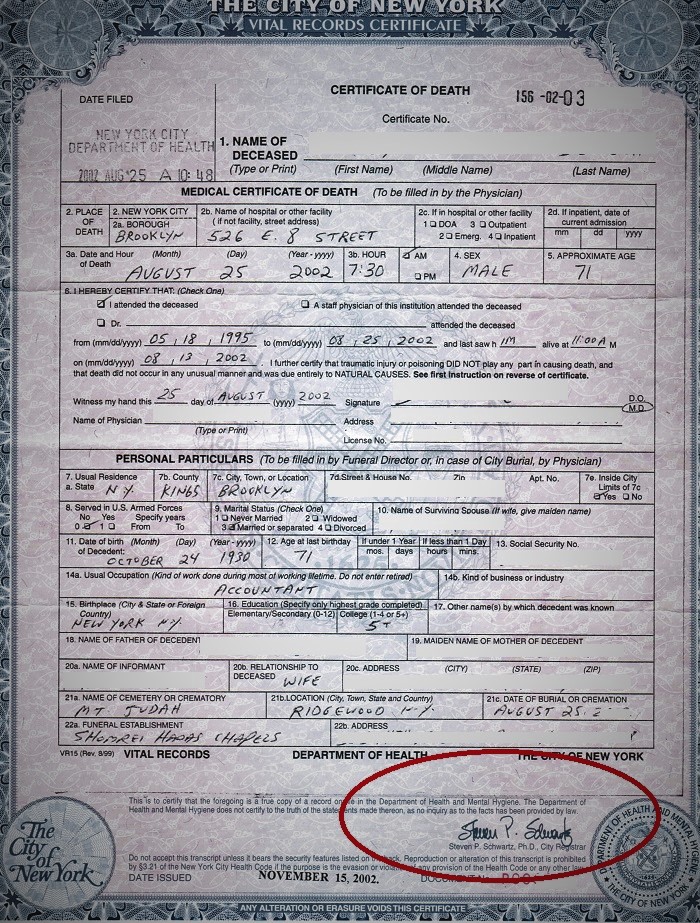 THE CITY OF NEW YORK
VITAL RECORDS CERTIFICATE
DATE FILED
CERTIFICATE OF DEATH
156-02-03
Certificate No.
NEW YORK CITY
DEPARTMENT OF HEALTH
2002 AUG 25 A 10:48
1. NAME OF DECEASED
(Type or Print) (First Name) (Middle Name) (Last Name)
MEDICAL CERTIFICATE OF DEATH (To be filled in by the Physician)
2. PLACE OF DEATH
2. NEW YORK CITY
2a. BOROUGH
BROOKLYN
2b. Name of hospital or other facility
( if not facility, street address)
526 E. 8 STREET
2c. If in hospital or other facility
1 ☐ DOA 3 ☐ Outpatient
2 ☐ Emerg. 4 ☐ Inpatient
2d. If inpatient, date of current admission
mm dd yyyy
3a. Date and Hour of Death (Month) (Day) (Year - yyyy)
AUGUST 25 2002
3b. HOUR
7:30
☑ AM
☐ PM
4. SEX
MALE
5. APPROXIMATE AGE
71
6. I HEREBY CERTIFY THAT: (Check One)
☑ I attended the deceased ☐ A staff physician of this institution attended the deceased
☐ Dr. attended the deceased
from (mm/dd/yyyy) 05, 18, 1995 to (mm/dd/yyyy) 08, 25, 2002 and last saw h IM alive at 11:00 A M
on (mm/dd/yyyy) 08, 13, 2002. I further certify that traumatic injury or poisoning DID NOT play any part in causing death, and
that death did not occur in any unusual manner and was due entirely to NATURAL CAUSES. See first Instruction on reverse of certificate.
Witness my hand this 25 day of AUGUST (yyyy) 2002 Signature D.O.
M.D.
Name of Physician Address
(Type or Print)
License No.
PERSONAL PARTICULARS (To be filled in by Funeral Director or, in case of City Burial, by Physician)
7. Usual Residence
a. State N.Y.
7b. County
KINGS
7c. City, Town, or Location
BROOKLYN
7d. Street & House No. Zip Apt. No.
7e. Inside City Limits of 7c
☑ Yes ☐ No
8. Served in U.S. Armed Forces
No Yes Specify years
0 ☑ 1 ☐ From To
9. Marital Status (Check One)
1 ☐ Never Married 2 ☐ Widowed
3 ☑ Married or separated 4 ☐ Divorced
10. Name of Surviving Spouse (If wife, give maiden name)
11. Date of Birth (Month) (Day) (Year - yyyy)
of Decedent:
OCTOBER 24 1930
12. Age at last birthday
71
If under 1 Year If less than 1 Day
mos. days hours mins.
13. Social Security No.
14a. Usual Occupation (Kind of work done during most of working lifetime. Do not enter retired)
ACCOUNTANT
14b. Kind of business or industry
15. Birthplace (City & State or Foreign Country)
NEW YORK N.Y.
16. Education (Specify only highest grade completed)
Elementary/Secondary (0-12) College (1-4 or 5+)
5+
17. Other name(s) by which decedent was known
18. NAME OF FATHER OF DECEDENT
19. MAIDEN NAME OF MOTHER OF DECEDENT
20a. NAME OF INFORMANT
20b. RELATIONSHIP TO DECEASED
WIFE
20c. ADDRESS (CITY) (STATE) (ZIP)
21a. NAME OF CEMETERY OR CREMATORY
MT. JUDAH
21b. LOCATION (City, Town, State and Country)
RIDGEWOOD N.Y.
21c. DATE OF BURIAL OR CREMATION
AUGUST 25, 2
22a. FUNERAL ESTABLISHMENT
SHOMREI HADAS CHAPELS
22b. ADDRESS
VR15 (Rev. 8/99) VITAL RECORDS DEPARTMENT OF HEALTH THE CITY OF NEW YORK
This is to certify that the foregoing is a true copy of a record on file in the Department of Health and Mental Hygiene. The Department of
Health and Mental Hygiene does not certify to the truth of the statements made thereon, as no inquiry as to the facts has been provided by law.
Steven P. Schwartz
Steven P. Schwartz, Ph.D., City Registrar
The City of New York
Do not accept this transcript unless it bears the security features listed on the back. Reproduction or alteration of this transcript is prohibited
by §3.21 of the New York City Health Code if the purpose is the evasion or violation of any provision of the Health Code or any other law.
DATE ISSUED NOVEMBER 15, 2002. DOCUMENT
DEPARTMENT OF HEALTH AND MENTAL
THE CITY OF NEW YORK
ANY ALTERATION OR ERASURE VOIDS THIS CERTIFICATE